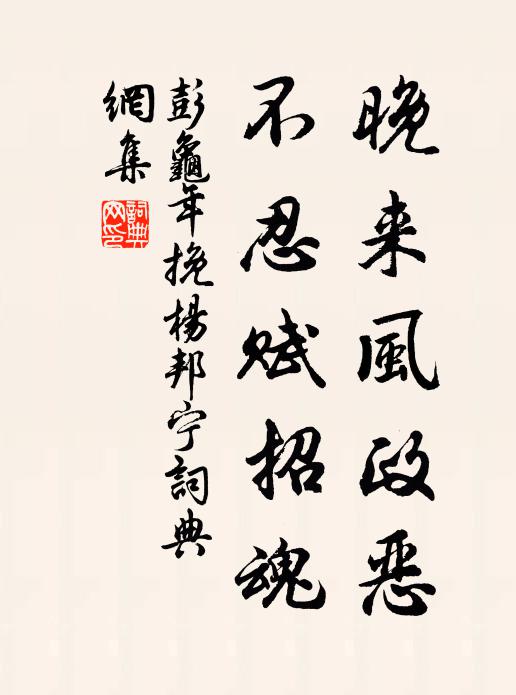 晚来風政恶
不忍赋招魂
彭龜年挽楊邦宁詞典
網集
詞典
网印